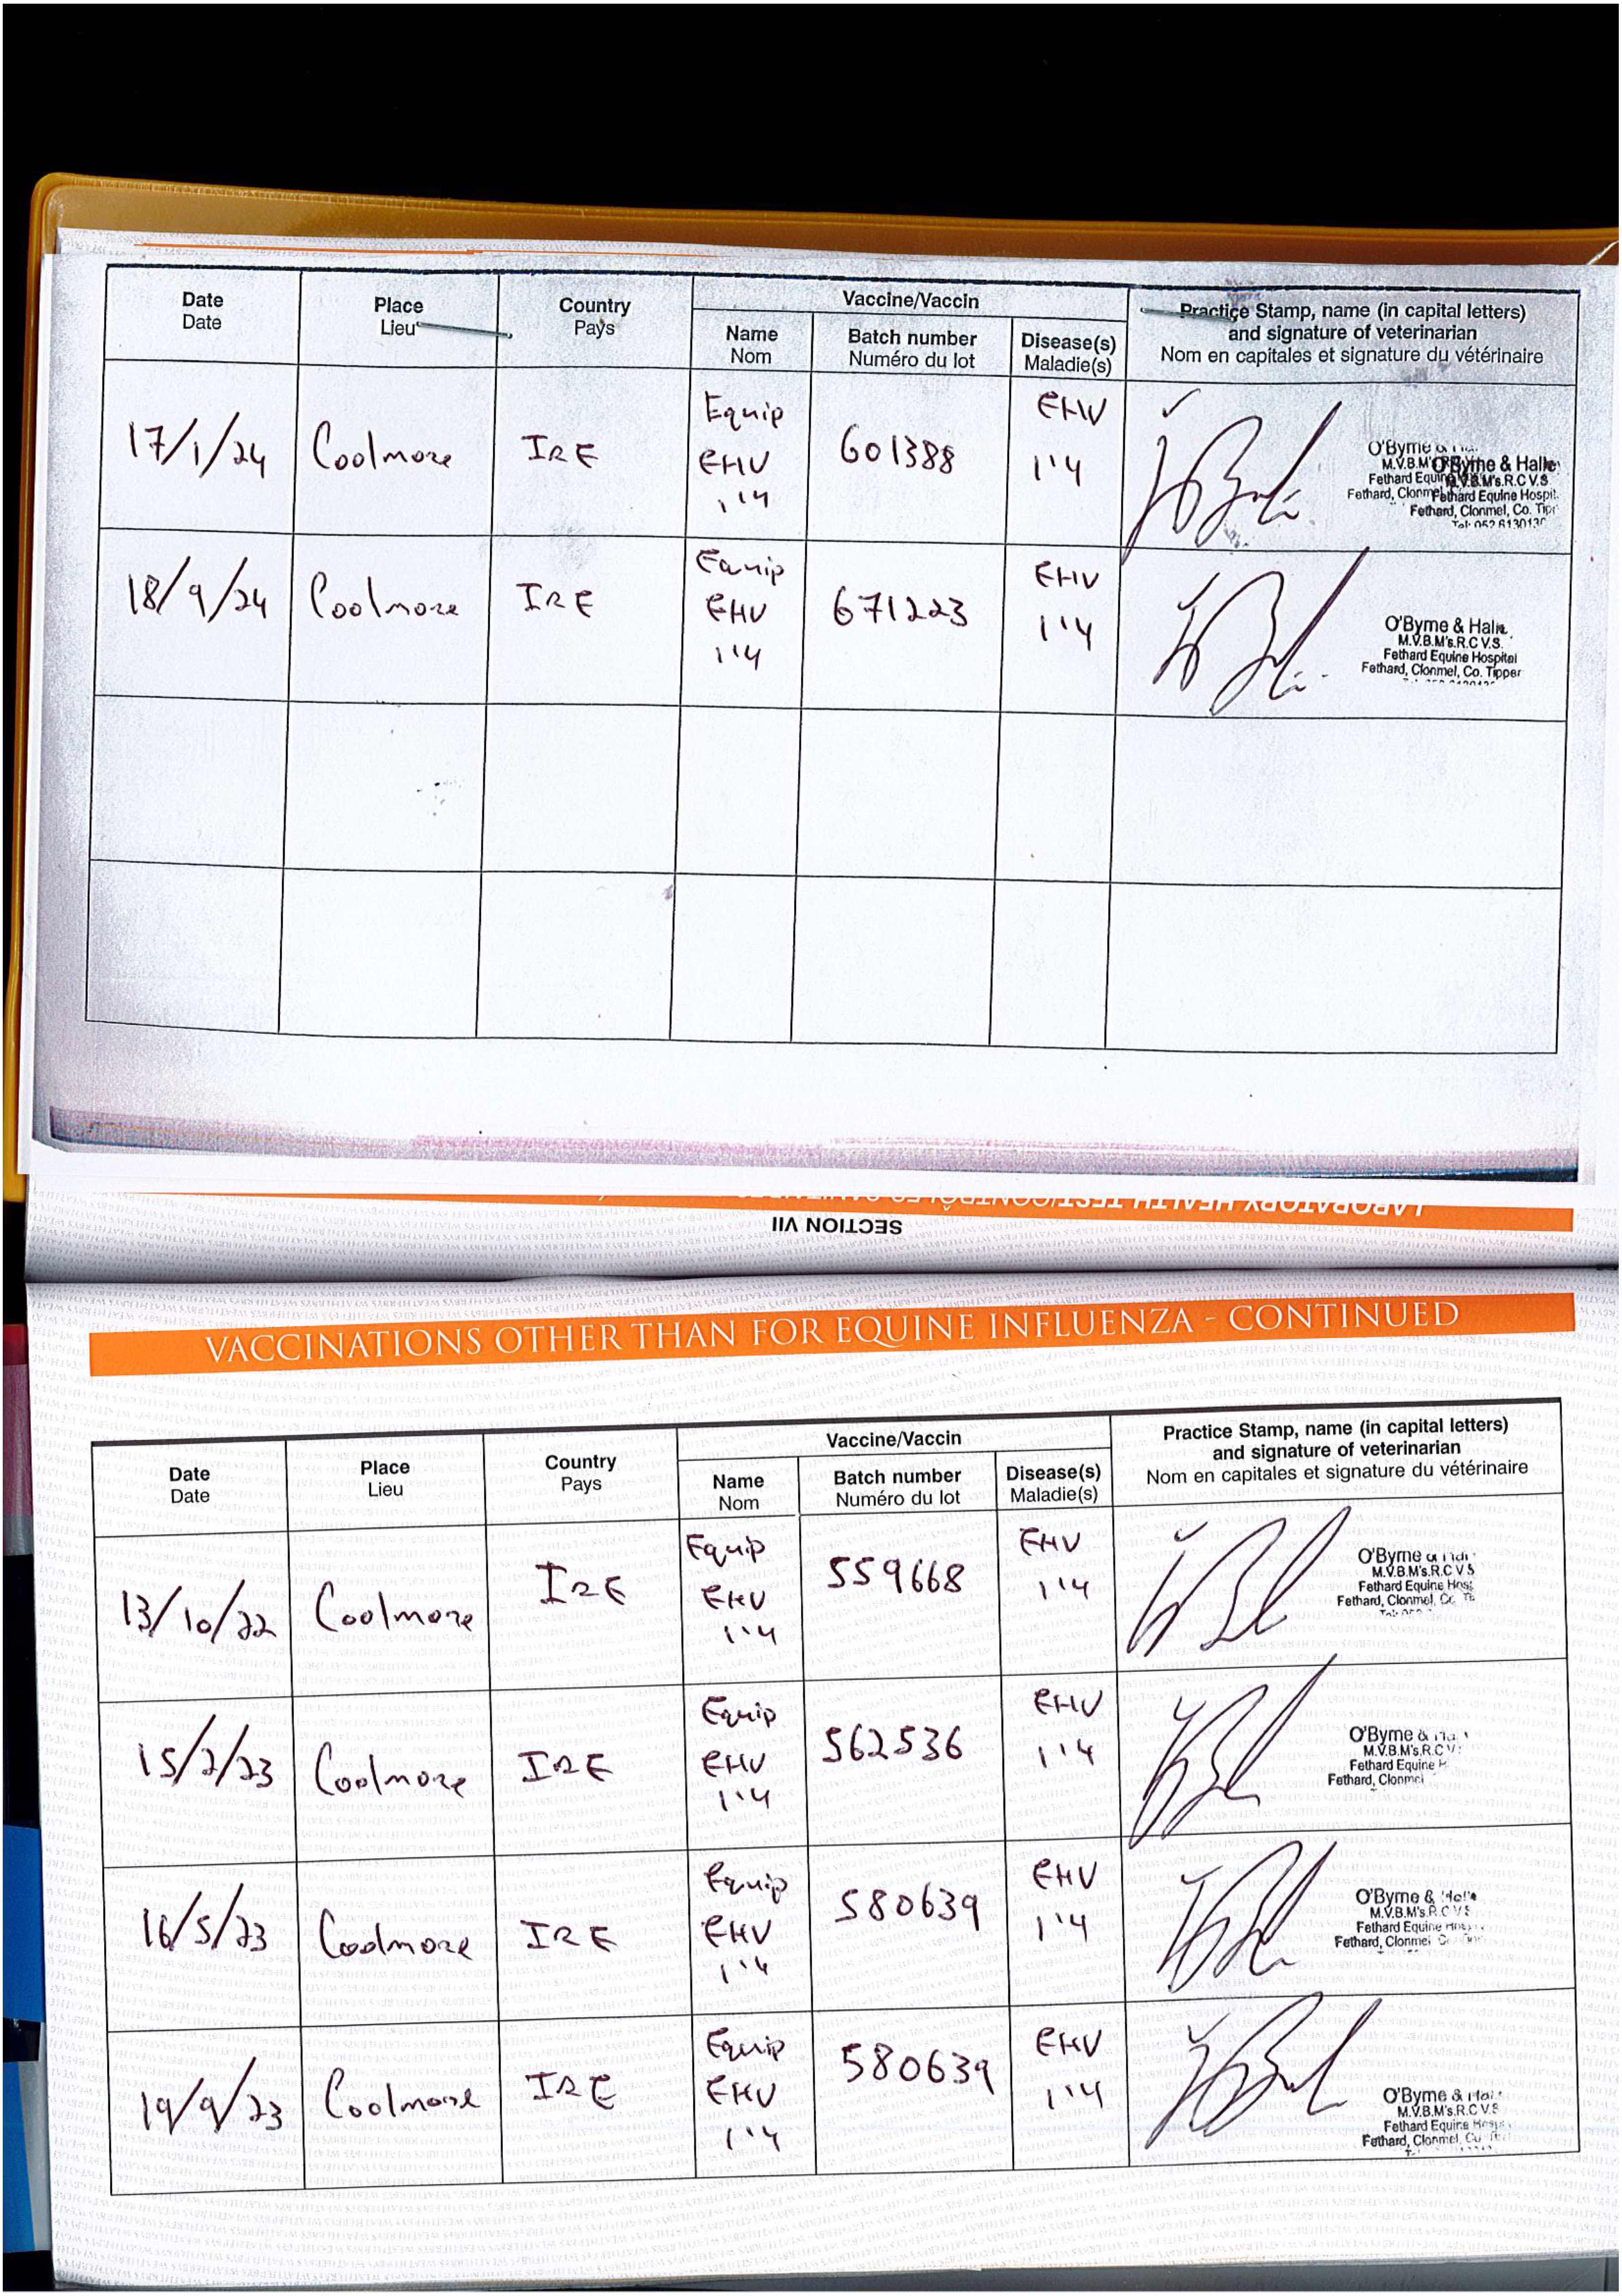 Date
Date
Place
Lieu
Country
Pays
Vaccine/Vaccin
Name
Nom
Batch number
Numéro du lot
Disease(s)
Maladie(s)
Practice Stamp, name (in capital letters)
and signature of veterinarian
Nom en capitales et signature du vétérinaire
17/1/24 Coolmore IRE Equip EHV 1'4 601388 EHV 1'4
O'Byrne &
M.V.B.M's
Fethard Equine
Fethard, Clonmel
O'Byrne & Halle
M.V.B.M's.R.C.V.S
Fethard Equine Hospit
Fethard, Clonmel, Co. Tipp
Tel: 052 613013
18/9/24 Coolmore IRE Equip EHV 1'4 671223 EHV 1'4
O'Byrne & Hall
M.V.B.M's.R.C.V.S.
Fethard Equine Hospital
Fethard, Clonmel, Co. Tipper
LABORATORY HEALTH TEST/CONTRÔLES
SECTION VII
VACCINATIONS OTHER THAN FOR EQUINE INFLUENZA - CONTINUED
Date
Date
Place
Lieu
Country
Pays
Vaccine/Vaccin
Name
Nom
Batch number
Numéro du lot
Disease(s)
Maladie(s)
Practice Stamp, name (in capital letters)
and signature of veterinarian
Nom en capitales et signature du vétérinaire
13/10/22 Coolmore IRE Equip EHV 1'4 559668 EHV 1'4
O'Byrne &
M.V.B.M's.R.C.V.S
Fethard Equine Hosp
Fethard, Clonmel, Co.
15/2/23 Coolmore IRE Equip EHV 1'4 562536 EHV 1'4
O'Byrne &
M.V.B.M's.R.C.V
Fethard Equine H
Fethard, Clonmel
16/5/23 Coolmore IRE Equip EHV 1'4 580639 EHV 1'4
O'Byrne & Halle
M.V.B.M's.R.C.V.S
Fethard Equine Hosp
Fethard, Clonmel
19/9/23 Coolmore IRE Equip EHV 1'4 580639 EHV 1'4
O'Byrne & Hal
M.V.B.M's.R.C.V.S
Fethard Equine Hosp
Fethard, Clonmel, Co